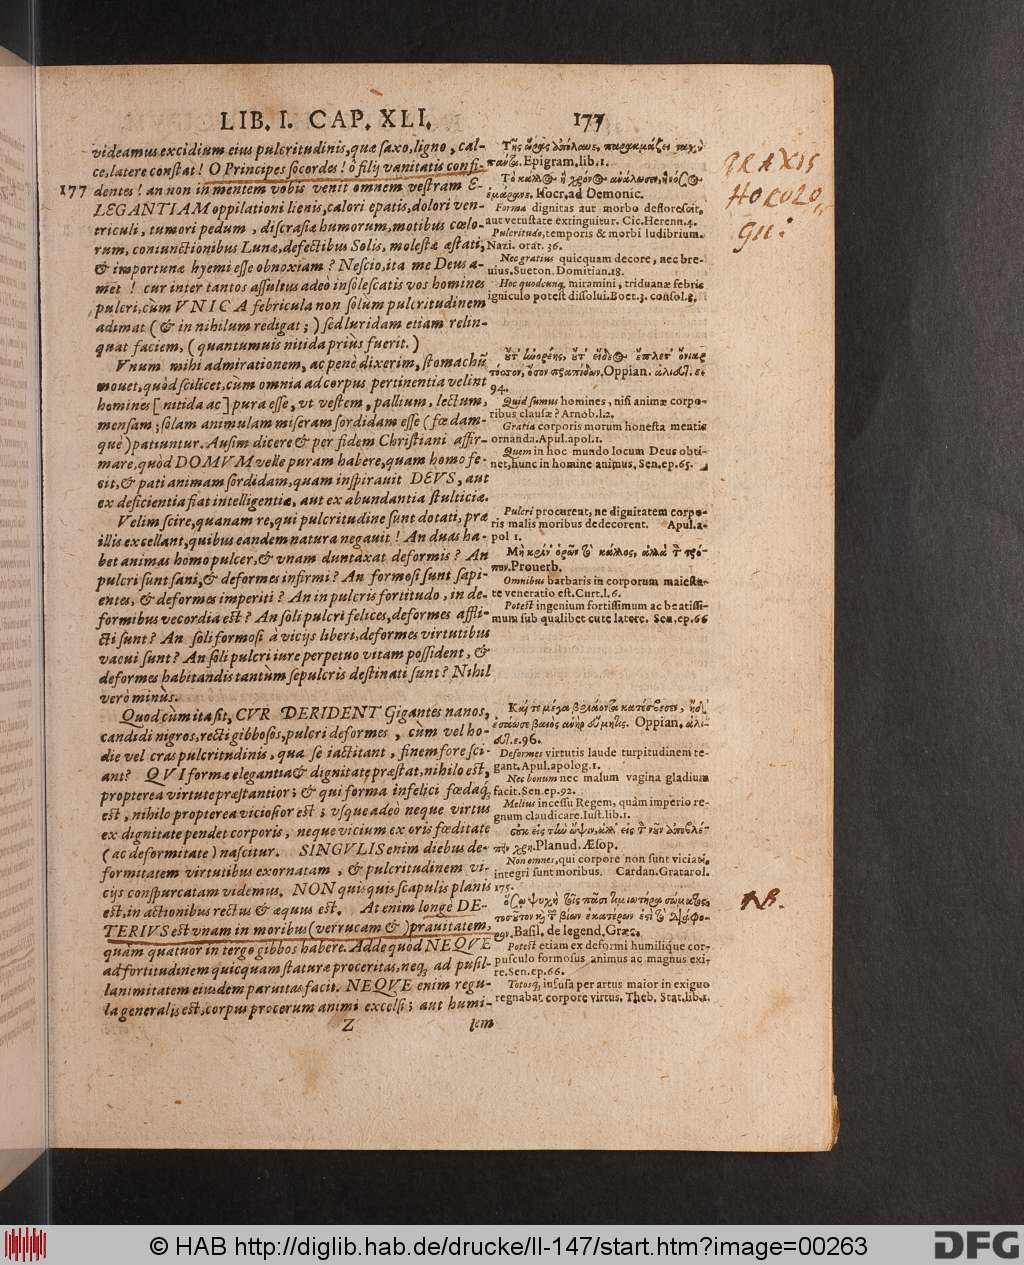 LIB. I. CAP. XLI. 177
videamus excidium eius pulcritudinis, quæ saxo, ligno, cal-
ce, latere constat! O Principes socordes! ô filij vanitatis confi-
177 dentes! an non in mentem vobis venit omnem vestram E-
LEGANTIAM oppilationi lienis, calori epatis, dolori ven-
triculi, tumori pedum, discrasiæ humorum, motibus cœlo-
rum, coniunctionibus Lunæ, defectibus Solis, molestæ æstati,
& importunæ hyemi esse obnoxiam? Nescio, ita me Deus a-
met! cur inter tantos assultus adeò insolescatis vos homines
pulcri, cùm VNICA febricula non solùm pulcritudinem
adimat (& in nihilum redigat;) sed luridam etiam relin-
quat faciem, (quantumuis nitida priùs fuerit.)
Vnum mihi admirationem, ac penè dixerim, stomachũ
mouet, quòd scilicet, cùm omnia ad corpus pertinentia velint
homines [nitida ac] pura esse, vt vestem, pallium, lectum,
mensam; solam animulam miseram sordidam esse (fœdam-
què) patiuntur. Ausim dicere & per fidem Christiani affir-
mare, quòd DOMVM velle puram habere, quam homo fe-
cit, & pati animam sordidam, quam inspirauit DEVS, aut
ex deficientia fiat intelligentiæ, aut ex abundantia stulticiæ.
Velim scire, quanam re, qui pulcritudine sunt dotati, præ
illis excellant, quibus eandem natura negauit! An duas ha-
bet animas homo pulcer, & vnam duntaxat deformis? An
pulcri sunt sani, & deformes infirmi? An formosi sunt sapi-
entes, & deformes imperiti? An in pulcris fortitudo, in de-
formibus vecordia est? An soli pulcri felices, deformes affli-
cti sunt? An soli formosi à vicijs liberi, deformes virtutibus
vacui sunt? An soli pulcri iure perpetuo vitam possident, &
deformes habitandis tantùm sepulcris destinati sunt? Nihil
verò minùs.
Quod cùm ita sit, CVR DERIDENT Gigantes nanos,
candidi nigros, recti gibbosos, pulcri deformes, cùm vel ho-
die vel cras pulcritudinis, qua se iactitant, finem fore sci-
ant? QVI formæ elegantia & dignitate præstat, nihilo est,
propterea virtute præstantior; & qui forma infelici fœdaq́;
est, nihilo propterea viciosior est; vsque adeò neque virtus
ex dignitate pendet corporis, neque vicium ex oris fœditate
(ac deformitate) nascitur. SINGVLIS enim diebus de-
formitatem virtutibus exornatam, & pulcritudinem vi-
cijs conspurcatam videmus. NON quisquis scapulis planis
est, in actionibus rectus & æquus est. At enim longè DE-
TERIVS est vnam in moribus (verrucam &) prauitatem,
quàm quatuor in tergo gibbos habere. Adde quòd NEQVE
ad fortitudinem quicquam staturæ proceritas, neq́; ad pusil-
lanimitatem eiusdem paruitas facit. NEQVE enim regu-
la generalis est, corpus procerum animi excelsi; aut humi-
Z lem
Epigram. lib. 1.
Hocr. ad Demonic.
Forma dignitas aut morbo deflorescit,
aut vetustate extinguitur. Cic. Herenn. 4.
Pulcritudo, temporis & morbi ludibrium.
Nazi. orat. 36.
Nec gratius quicquam decore, nec bre-
uius. Sueton. Domitian. 18.
Hoc quodcunq; miramini, triduanæ febris
igniculo potest dissolui. Boet. 3. consol. 8.
Oppian.
94.
Quid sumus homines, nisi animæ corpo-
ribus clausæ? Arnob. l. 2.
Gratia corporis morum honesta mentis
ornanda. Apul. apol. 1.
Quem in hoc mundo locum Deus obti-
net, hunc in homine animus. Sen. ep. 65.
Pulcri procurent, ne dignitatem corpo-
ris malis moribus dedecorent. Apul. a-
pol 1.
Prouerb.
Omnibus barbaris in corporum maiesta-
te veneratio est. Curt. l. 6.
Potest ingenium fortissimum ac beatissi-
mum sub qualibet cute latere. Sen. ep. 66
Oppian.
96.
Deformes virtutis laude turpitudinem te-
gant. Apul. apolog. 1.
Nec bonum nec malum vagina gladium
facit. Sen. ep. 92.
Melius incessu Regem, quàm imperio re-
gnum claudicare. Iust. lib. 1.
Planud. Æsop.
Non omnes, qui corpore non sunt viciati,
integri sunt moribus. Cardan. Gratarol.
175.
Basil. de legend. Græc.
Potest etiam ex deformi humilique cor-
pusculo formosus animus ac magnus exi-
re. Sen. ep. 66.
Totosq; infusa per artus maior in exiguo
regnabat corpore virtus. Theb. Stat. lib. 1.
NB.
© HAB http://diglib.hab.de/drucke/ll-147/start.htm?image=00263
DFG